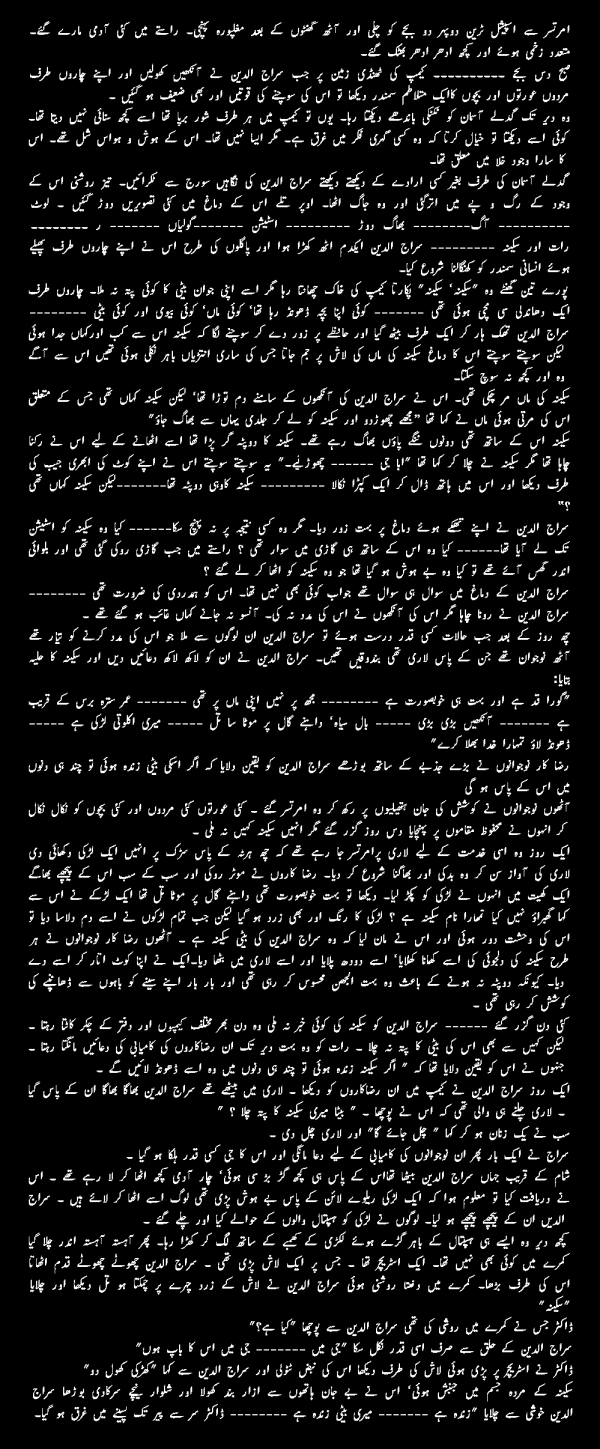 امرتسر سے اسپیشل ٹرین دوپہر دو بجے کو چلی اور آٹھ گھنٹوں کے بعد مغلپورہ پہنچی۔ راستے میں کئی آدمی مارے گئے۔
متعدد زخمی ہوئے اور کچھ ادھر ادھر بھٹک گئے۔
صبح دس بجے ---------- کیمپ کی ٹھنڈی زمین پر جب سراج الدین نے آنکھیں کھولیں اور اپنے چاروں طرف
مردوں عورتوں اور بچوں کاایک متلاطم سمندر دیکھا تو اس کی سوچنے کی قوتیں اور بھی ضعیف ہو گئیں ۔
وہ دیر تک گدلے آسمان کو ٹکٹکی باندھے دیکھتا رہا۔ یوں تو کیمپ میں ہر طرف شور برپا تھا اسے کچھ سنائی نہیں دیتا تھا۔
کوئی اسے دیکھتا تو خیال کرتا کہ وہ کسی گہری فکر میں غرق ہے۔ مگر ایسا نہیں تھا۔ اس کے ہوش و ہواس شل تھے۔ اس
کا سارا وجود خلا میں معلق تھا۔
گدلے آسمان کی طرف بغیر کسی ارادے کے دیکھتے دیکھتے سراج الدین کی نگاہیں سورج سے ٹکرائیں۔ تیز روشنی اس کے
وجود کے رگ و پے میں اترگئی اور وہ جاگ اٹھا۔ اوپر تلے اس کے دماغ میں کئی تصویریں دوڑ گئیں ۔ لوٹ
---------- آگ-------- بھاگ دوڑ --------- اسٹیشن -------گولیاں ------- ر --------
رات اور سکینہ --------- سراج الدین ایکدم اٹھ کھڑا ہوا اور پاگلوں کی طرح اس نے اپنے چاروں طرف پھیلے
ہوئے انسانی سمندر کو کھنگالنا شروع کیا۔
پورے تین گھنٹے وہ "سکینہ' سکینہ" پکارتا کیمپ کی خاک چھانتا رہا مگر اسے اپنی جوان بیٹی کا کوئی پتہ نہ ملا۔ چاروں طرف
ایک دھاندلی سی مچی ہوئی تھی ------- کوئی اپنا بچہ ڈھونڈ رہا تھا' کوئی ماں' کوئی بیوی اور کوئی بیٹی --------
سراج الدین تھک ہار کر ایک طرف بیٹھ گیا اور حافظے پر زور دے کر سوچنے لگا کہ سکینہ اس سے کب اورکہاں جدا ہوئی
لیکن سوچتے سوچتے اس کا دماغ سکینہ کی ماں کی لاش پر جم جاتا جس کی ساری انتڑیاں باہر نکلی ہوئی تھیں اس سے آگے
وہ اور کچھ نہ سوچ سکتا۔
سکینہ کی ماں مر چکی تھی۔ اس نے سراج الدین کی آنکھوں کے سامنے دم توڑا تھا' لیکن سکینہ کہاں تھی جس کے متعلق
اس کی مرتی ہوئی ماں نے کہا تھا "مجھے چھوڑدو اور سکینہ کو لے کر جلدی یہاں سے بھاگ جاؤ"
سکینہ اس کے ساتھ تھی دونوں ننگے پاؤں بھاگ رہے تھے۔ سکینہ کا دوپٹہ گر پڑا تھا اسے اٹھانے کے لیے اس نے رکنا
چاہا تھا مگر سکینہ نے چلا کر کہا تھا "ابا جی ------ چھوڑئیے۔" یہ سوچتے سوچتے اس نے اپنے کوٹ کی ابھری جیب کی
طرف دیکھا اور اس میں ہاتھ ڈال کر ایک کپڑا نکالا --------- سکینہ کاوہی دوپٹہ تھا-------لیکن سکینہ کہاں تھی
؟"
سراج الدین نے اپنے تھکے ہوئے دماغ پر بہت زور دیا۔ مگر وہ کسی نتیجہ پر نہ پہنچ سکا------ کیا وہ سکینہ کو اسٹیشن
تک لے آیا تھا------ کیا وہ اس کے ساتھ ہی گاڑی میں سوار تھی ؟ راستے میں جب گاڑی روکی گئی تھی اور بلوائی
اندر گھس آئے تھے تو کیا وہ بے ہوش ہو گیا تھا جو وہ سکینہ کو اٹھا کر لے گئے ؟
سراج الدین کے دماغ میں سوال ہی سوال تھے جواب کوئی بھی نہیں تھا۔ اس کو ہمدردی کی ضرورت تھی --------
سراج الدین نے رونا چاہا مگر اس کی آنکھوں نے اس کی مدد نہ کی۔ آنسو نہ جانے کہاں غائب ہو گئے تھے ۔
چھ روز کے بعد جب حالات کسی قدر درست ہوئے تو سراج الدین ان لوگوں سے ملا جو اس کی مدد کرنے کو تیار تھے
آٹھ نوجوان تھے جن کے پاس لاری تھی بندوقیں تھیں۔ سراج الدین نے ان کو لاکھ لاکھ دعائیں دیں اور سکینہ کا حلیہ
بتایا:
"گورا قد ہے اور بہت ہی خوبصورت ہے -------- مجھ پر نہیں اپنی ماں پر تھی ------- عمر سترہ برس کے قریب
ہے ------- آنکھیں بڑی بڑی ----- بال سیاہ' داہنے گال پر موٹا سا تل ----- میری اکلوتی لڑکی ہے -----
ڈھونڈ لاؤ تمہارا خدا بھلا کرے"
رضا کار نوجوانوں نے بڑے جذبے کے ساتھ بوڑھے سراج الدین کو یقین دلایا کہ اگر اسکی بیٹی زندہ ہوئی تو چند ہی دنوں
میں اس کے پاس ہو گی
آٹھوں نوجوانوں نے کوشش کی جان ہتھیلیوں پر رکھ کر وہ امرتسر گئے ۔ کئی عورتوں کئی مردوں اور کئی بچوں کو نکال نکال
کر انہوں نے محفوظ مقاموں پر پہنچایا دس روز گزر گئے مگر انہیں سکینہ کہیں نہ ملی ۔
ایک روز وہ اسی خدمت کے لیے لاری پرامرتسر جا رہے تھے کہ چھ ہرٹہ کے پاس سڑک پر انہیں ایک لڑکی دکھائی دی
لاری کی آواز سن کر وہ بدکی اور بھاگنا شروع کر دیا۔ رضا کاروں نے موٹر روکی اور سب کے سب اس کے پیچھے بھاگے
ایک کھیت میں انہوں نے لڑکی کو پکڑ لیا۔ دیکھا تو بہت خوبصورت تھی داہنے گال پر موٹا تل تھا ایک لڑکے نے اس سے
کہا گھبراؤ نہیں کیا تمھارا نام سکینہ ہے ؟ لڑکی کا رنگ اور بھی زرد ہو گیا لیکن جب تمام لڑکوں نے اسے دم دلاسا دیا تو
اس کی وحشت دور ہوئی اور اس نے مان لیا کہ وہ سراج الدین کی بیٹی سکینہ ہے ۔ آٹھوں رضا کار نوجوانوں نے ہر
طرح سکینہ کی دلجوئی کی اسے کھانا کھلایا' اسے دوودھ پلایا اور اسے لاری میں بٹھا دیا۔ایک نے اپنا کوٹ اتار کر اسے دے
دیا۔ کیونکہ دوپٹہ نہ ہونے کے باعث وہ بہت الجھن محسوس کر رہی تھی اور بار بار اپنے سینے کو باہوں سے ڈھانپنے کی
کوشش کر رہی تھی ۔
کئی دن گزر گئے ------ سراج الدین کو سکینہ کی کوئی خبر نہ ملی وہ دن بھر مختلف کیمپوں اور دفتر کے چکر کاٹتا رہتا ۔
لیکن کہیں سے بھی اس کی بیٹی کا پتہ نہ چلا ۔ رات کو وہ بہت دیر تک ان رضاکاروں کی کامیابی کی دعائیں مانگتا رہتا ۔
جنہوں نے اس کو یقین دلایا تھا کہ " اگر سکینہ زندہ ہوئی تو چند ہی دنوں میں وہ اسے ڈھونڈ لائیں گے ۔
ایک روز سراج الدین نے کیمپ میں ان رضاکاروں کو دیکھا ۔ لاری میں بیٹھے تھے سراج الدین بھاگا بھاگا ان کے پاس گیا
۔ لاری چلنے ہی والی تھی کہ اس نے پوچھا ۔ " بیٹا میری سکینہ کا پتہ چلا ؟ "
سب نے یک زبان ہو کر کہا " چل جائے گا" اور لاری چل دی ۔
سراج نے ایک بار پھر ان نوجوانوں کی کامیابی کے لیے دعا مانگی اور اس کا جی کسی قدر ہلکا ہو گیا ۔
شام کے قریب جہاں سراج الدین بیٹھا تھااس کے پاس ہی کچھ گڑ بڑ سی ہوئی' چار آدمی کچھ اٹھا کر لا رہے تھے ۔ اس
نے دریافت کیا تو معلوم ہوا کہ ایک لڑکی ریلوے لائن کے پاس بے ہوش پڑی تھی لوگ اسے اٹھا کر لائے ہیں ۔ سراج
الدیں ان کے پیچھے پیچھے ہو لیا۔ لوگوں نے لڑکی کو ہسپتال والوں کے حوالے کیا اور چلے گئے ۔
کچھ دیر وہ ایسے ہی ہسپتال کے باہر گڑے ہوئے لکڑی کے کھمبے کے ساتھ لگ کر کھڑا رہا۔ پھر آہستہ آہستہ اندر چلا گیا
کمرے میں کوئی بھی نہیں تھا۔ ایک اسٹریچر تھا ۔ جس پر ایک لاش پڑی تھی ۔ سراج الدین چھوٹے چھوٹے قدم اٹھاتا
اس کی طرف بڑھا۔ کمرے میں دفعتا روشنی ہوئی سراج الدین نے لاش کے زرد چہرے پر چمکتا ہو تل دیکھا اور چلایا
"سکینہ"
ڈاکٹر جس نے کمرے میں روشی کی تھی سراج الدین سے پوچھا "کیا ہے؟"
سراج الدین کے حلق سے صرف اسی قدر نکل سکا "جی میں ------- جی میں اس کا باپ ہوں"
ڈاکٹر نے اسٹریچر پر پڑی ہوئی لاش کی طرف دیکھا اس کی نبض ٹٹولی اور سراج الدین سے کہا "کھڑکی کھول دو"
سکینہ کے مردہ جسم میں جنبش ہوئی' اس نے بے جان ہاتھوں سے ازار بند کھولا اور شلوار نیچے سرکادی بوڑھا سراج
الدین خوشی سے چلایا "زندہ ہے ------- میری بیٹی زندہ ہے -------- ڈاکٹر سر سے پیر تک پسینے میں غرق ہو گیا۔